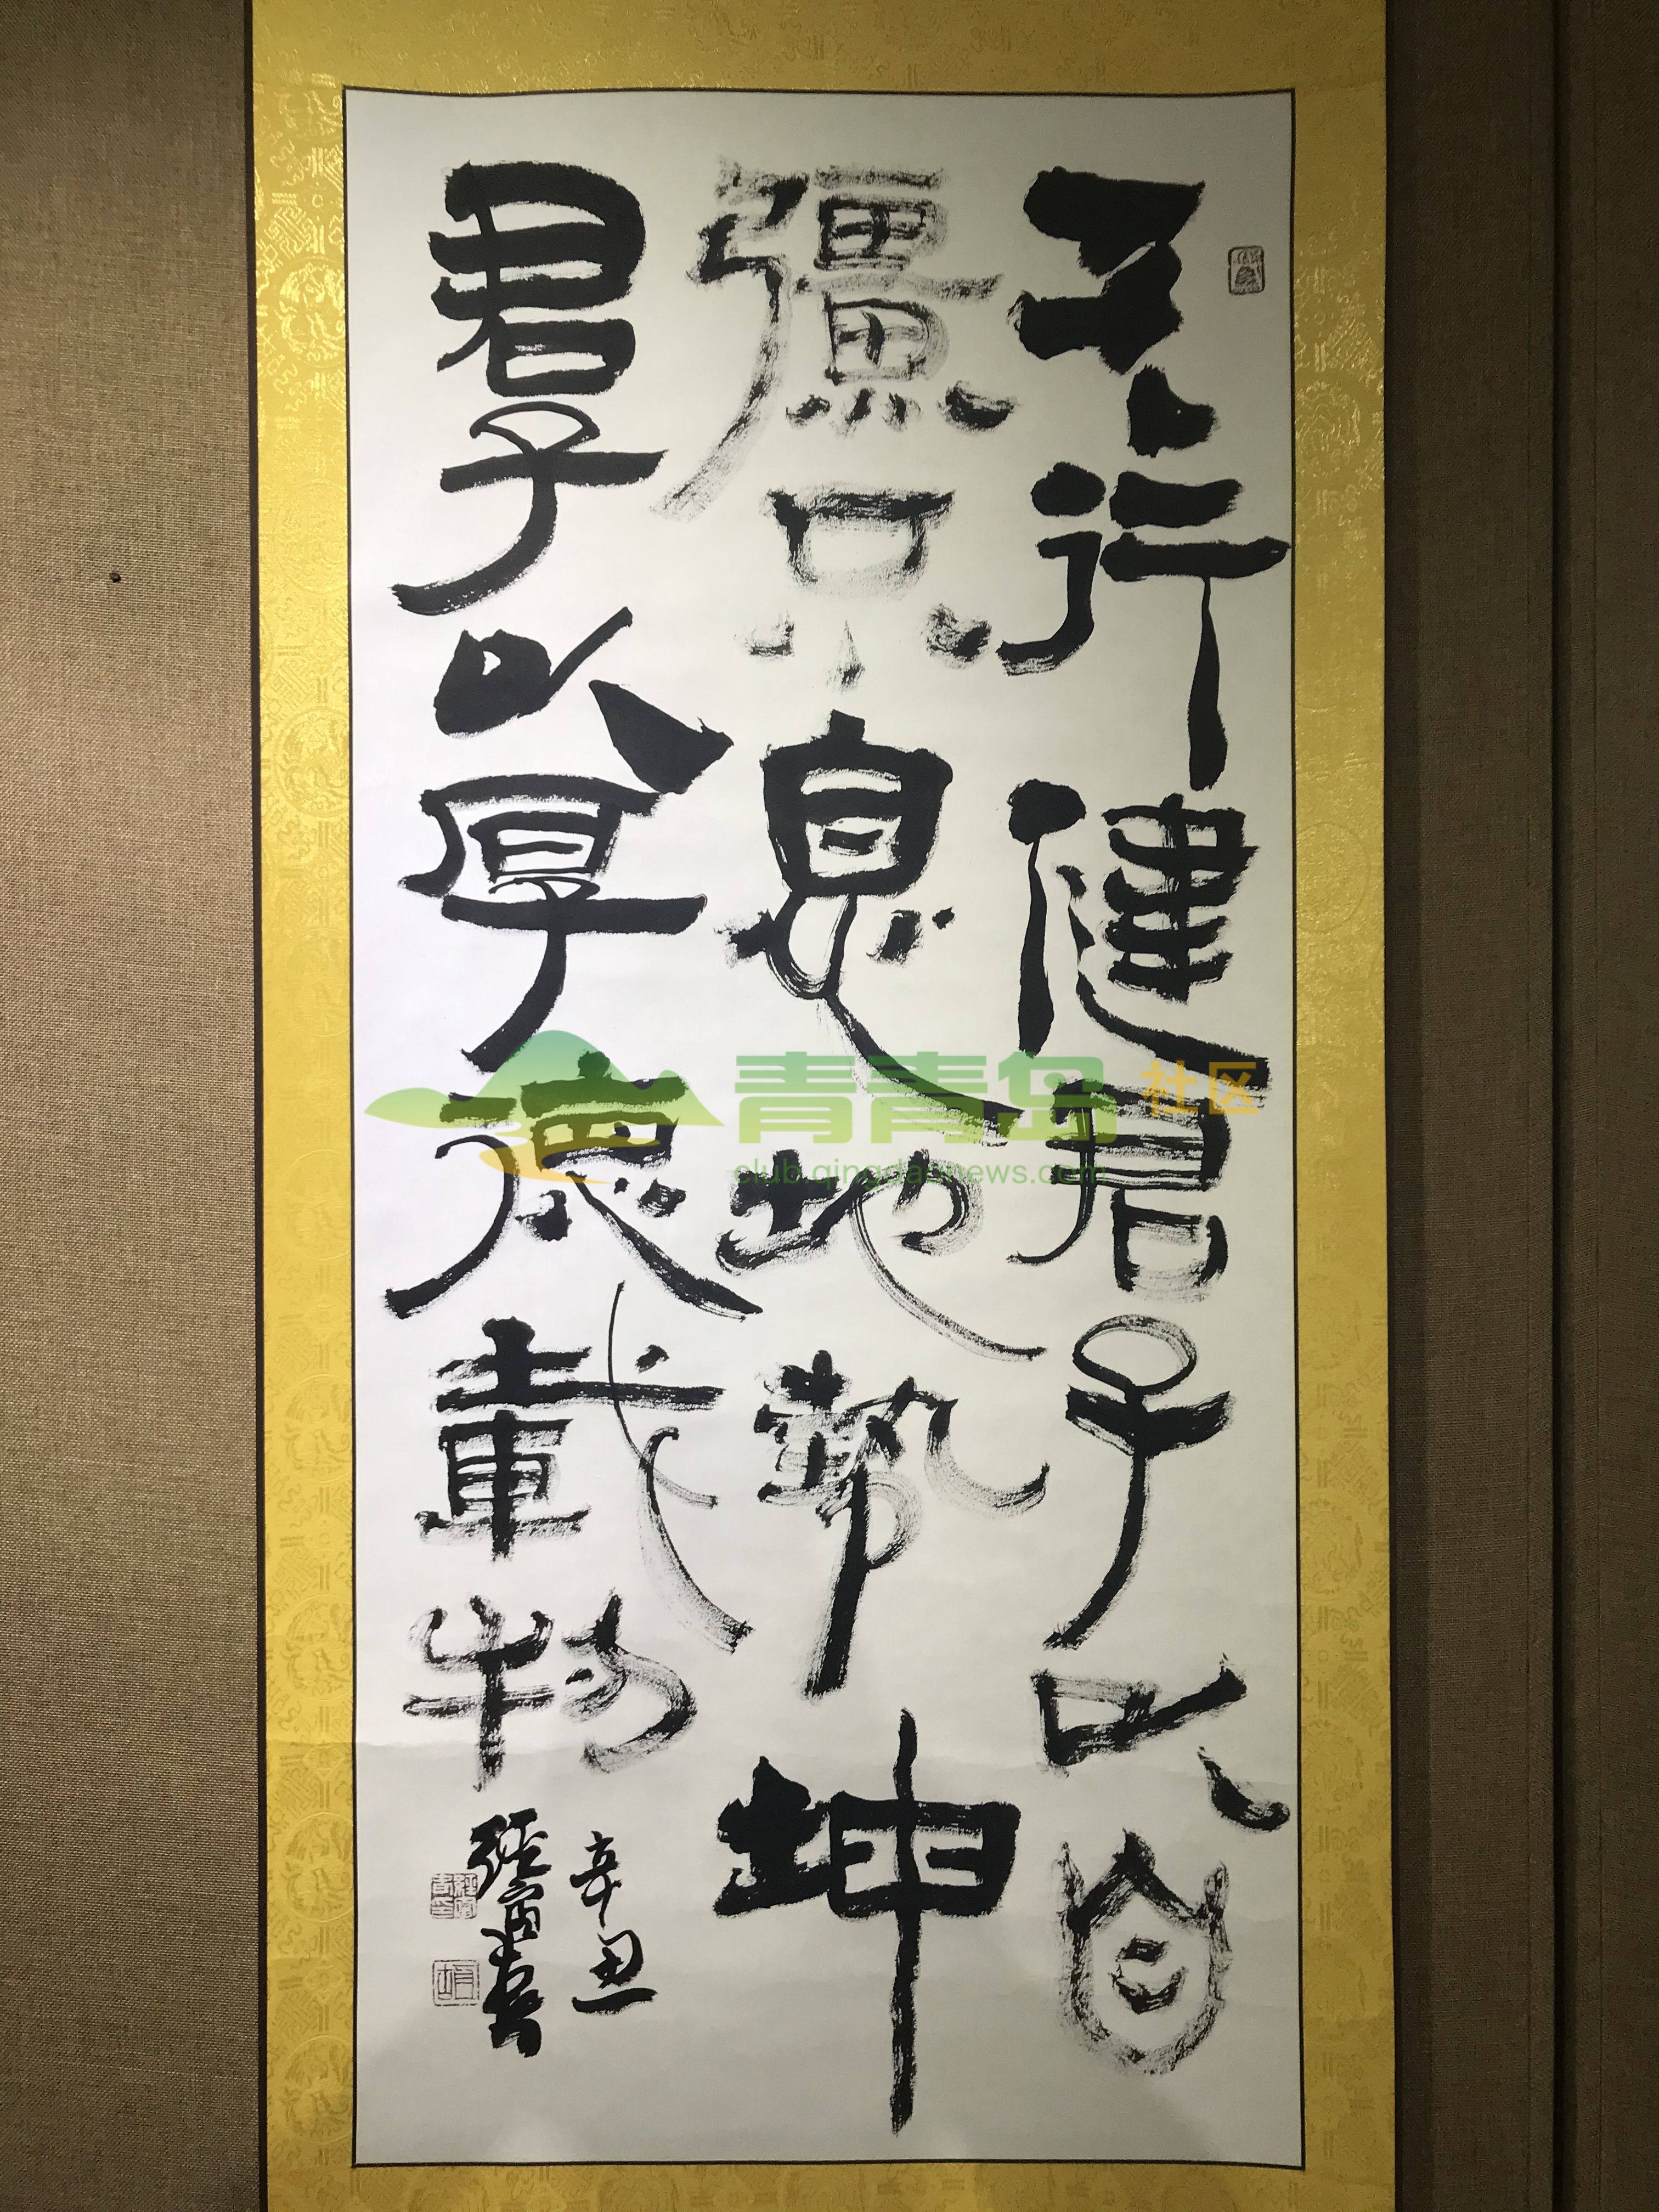 天行健君子以自
彊不息地勢坤
君子以厚德載物
辛丑
青青岛社区
club.qingdaonews.com